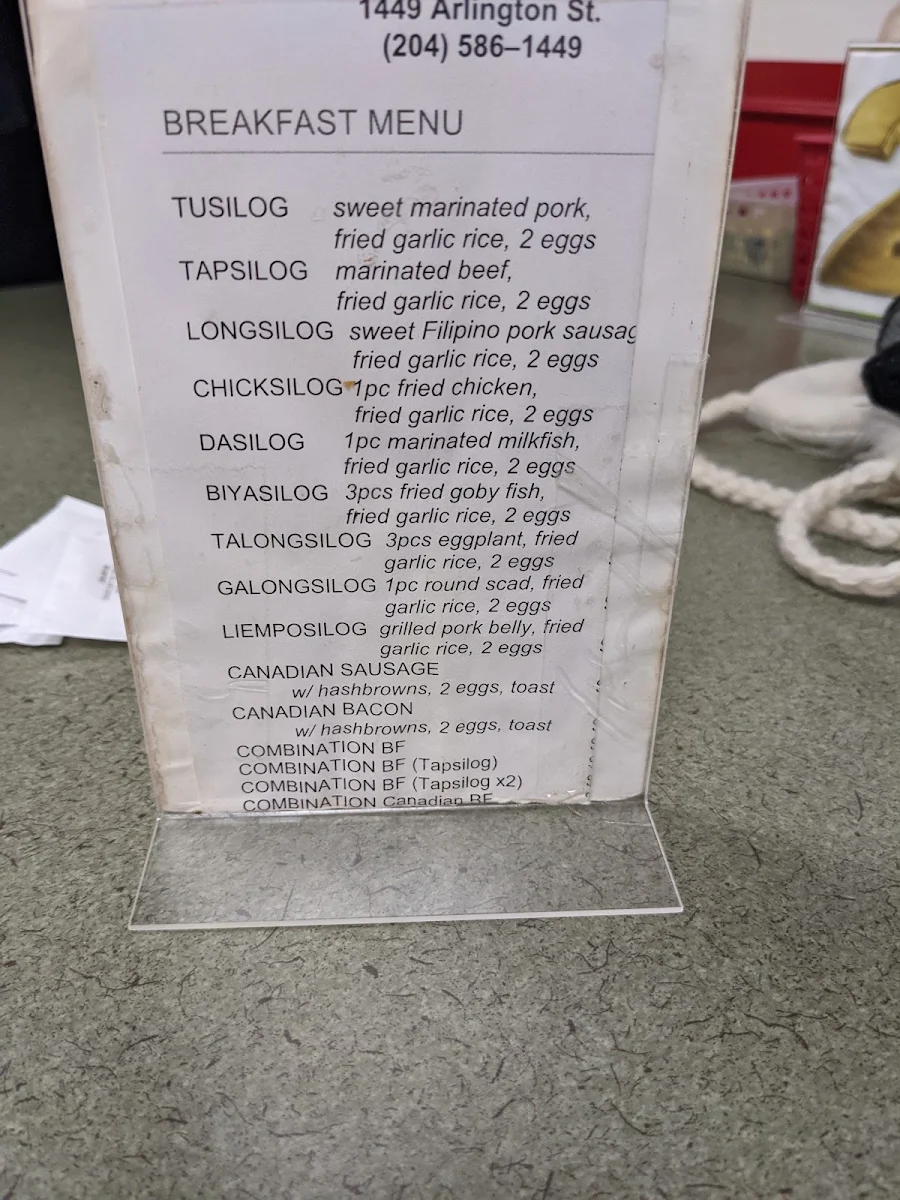 1449 Arlington St.
(204) 586–1449
BREAKFAST MENU
TUSILOG sweet marinated pork,
fried garlic rice, 2 eggs
TAPSILOG marinated beef,
fried garlic rice, 2 eggs
LONGSILOG sweet Filipino pork sausag
fried garlic rice, 2 eggs
CHICKSILOG 1pc fried chicken,
fried garlic rice, 2 eggs
DASILOG 1pc marinated milkfish,
fried garlic rice, 2 eggs
BIYASILOG 3pcs fried goby fish,
fried garlic rice, 2 eggs
TALONGSILOG 3pcs eggplant, fried
garlic rice, 2 eggs
GALONGSILOG 1pc round scad, fried
garlic rice, 2 eggs
LIEMPOSILOG grilled pork belly, fried
garlic rice, 2 eggs
CANADIAN SAUSAGE
w/ hashbrowns, 2 eggs, toast
CANADIAN BACON
w/ hashbrowns, 2 eggs, toast
COMBINATION BF
COMBINATION BF (Tapsilog)
COMBINATION BF (Tapsilog x2)
COMBINATION Canadian BF